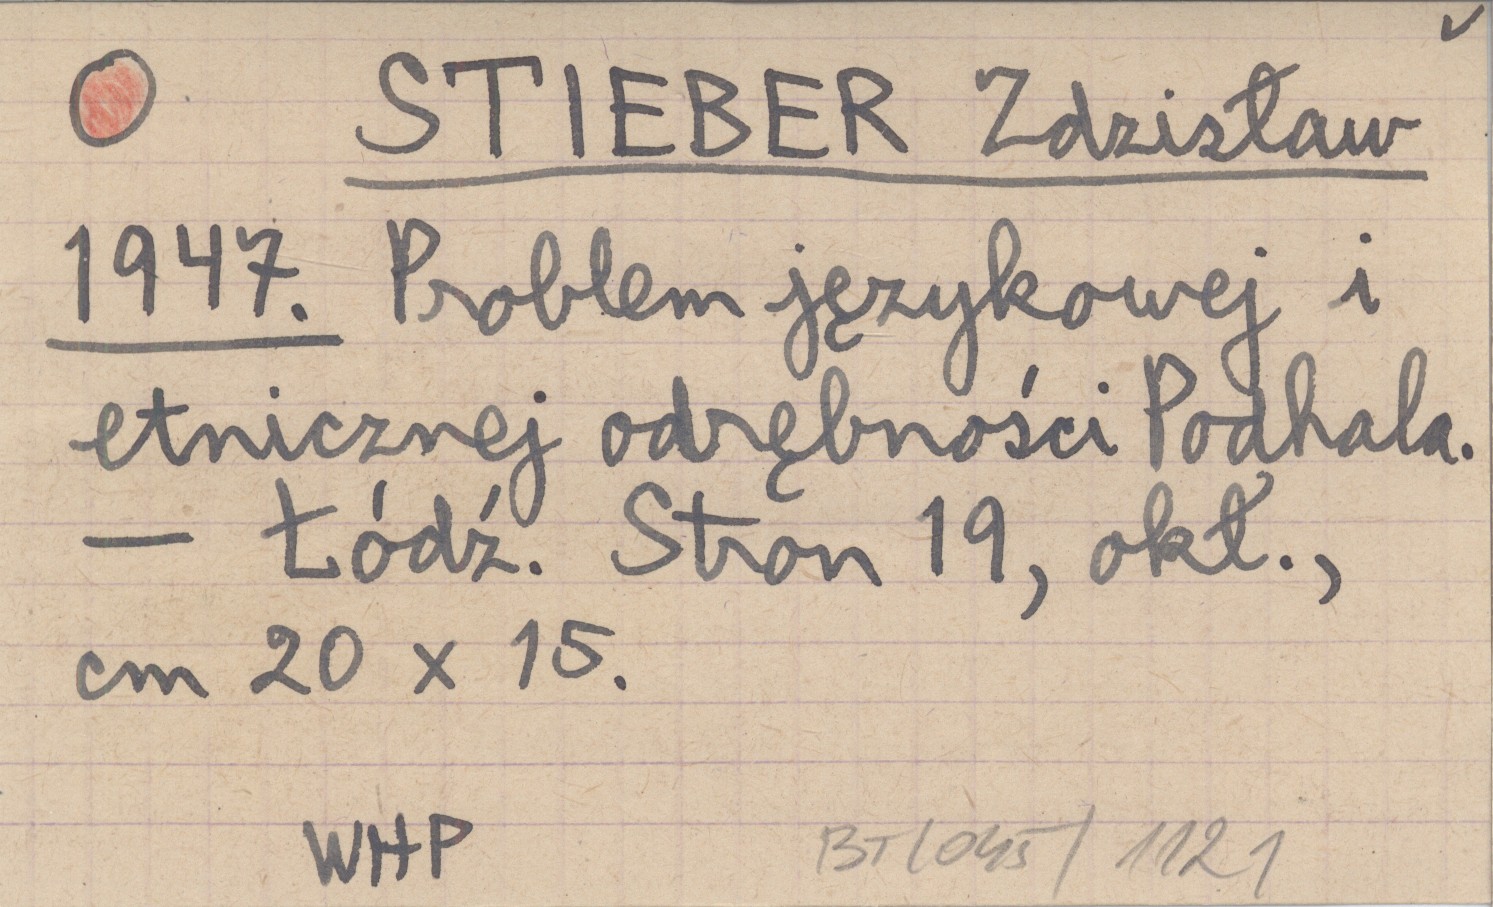 STIEBER Zdzisław
1947. Problem językowej i
etnicznej odrębności Podhala.
— Łódź. Stron 19, okł.,
cm 20 x 15.
WHP
BT/045/1121